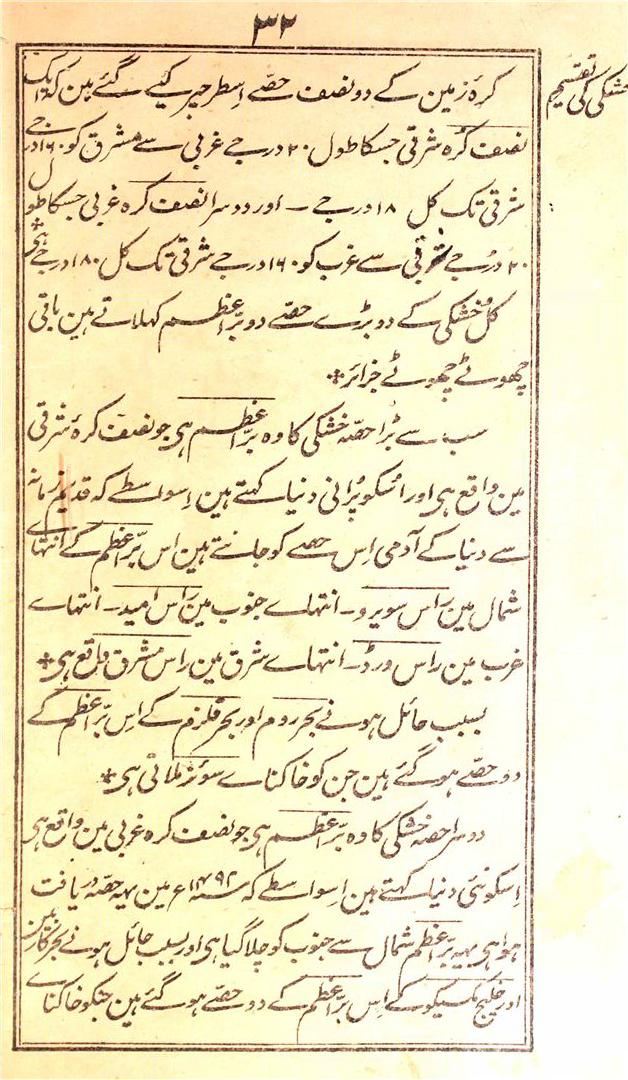 ۳۲
خشکی کی تقسیم
کرۂ زمین کے دو نصف حصّے اِسطرحپر کیٔے گئے ہین کہ ایک
نصف کرہ شرقی جسکا طول ۲۰ درجے غربی سے مشرق کو ۱۶۰ درجے
شرقی تک کل ۱۸۰ درجے ـ اور دوسرا نصف کرہ غربی جسکا طول
۲۰ درجے شرقی سے غرب کو ۱۶۰ درجے شرقی تک کل ۱۸۰ درجے ہی
کل خشکی کے دو بڑے حصّے دو برّ اعظم کہلاتے ہین باقی
چھوٹے چھوٹے جزائر
سب سے بڑا حصّہ خشکی کا وہ برّ اعظم ہی جو نصف کرۂ شرقی
مین واقع ہی اور اُسکو پُرانی دنیا کہتے ہین اِسواسطے کہ قدیم زمانہ
سے دنیا کے آدمی اِس حصّے کو جانتے ہین اس برّ اعظم کے انتہاے
شمال مین راس سویرو ـ انتہاے جنوب مین راس امید ـ انتہاے
غرب مین راس ورڈ ـ انتہاے شرق مین راس مشرق واقع ہی
بسبب حائل ہونے بحر روم اور بحر قلزم کے اِس برّ اعظم کے
دو حصّے ہو گئے ہین جن کو خاکناے سوئز ملاتی ہی
دوسرا حصّہ خشکی کا وہ برّ اعظم ہی جو نصف کرہ غربی مین واقع ہی
اِسکو نئی دنیا کہتے ہین اِسواسطے کہ سنہ ۱۴۹۲ ع مین یہہ حصّہ دریافت
ہوا ہی یہہ برّ اعظم شمال سے جنوب کو چلا گیا ہی اور بسبب حائل ہونے بحر کاربین
اور خلیج مکسیکو کے اِس برّ اعظم کے دو حصّے ہو گئے ہین جنکو خاکناے